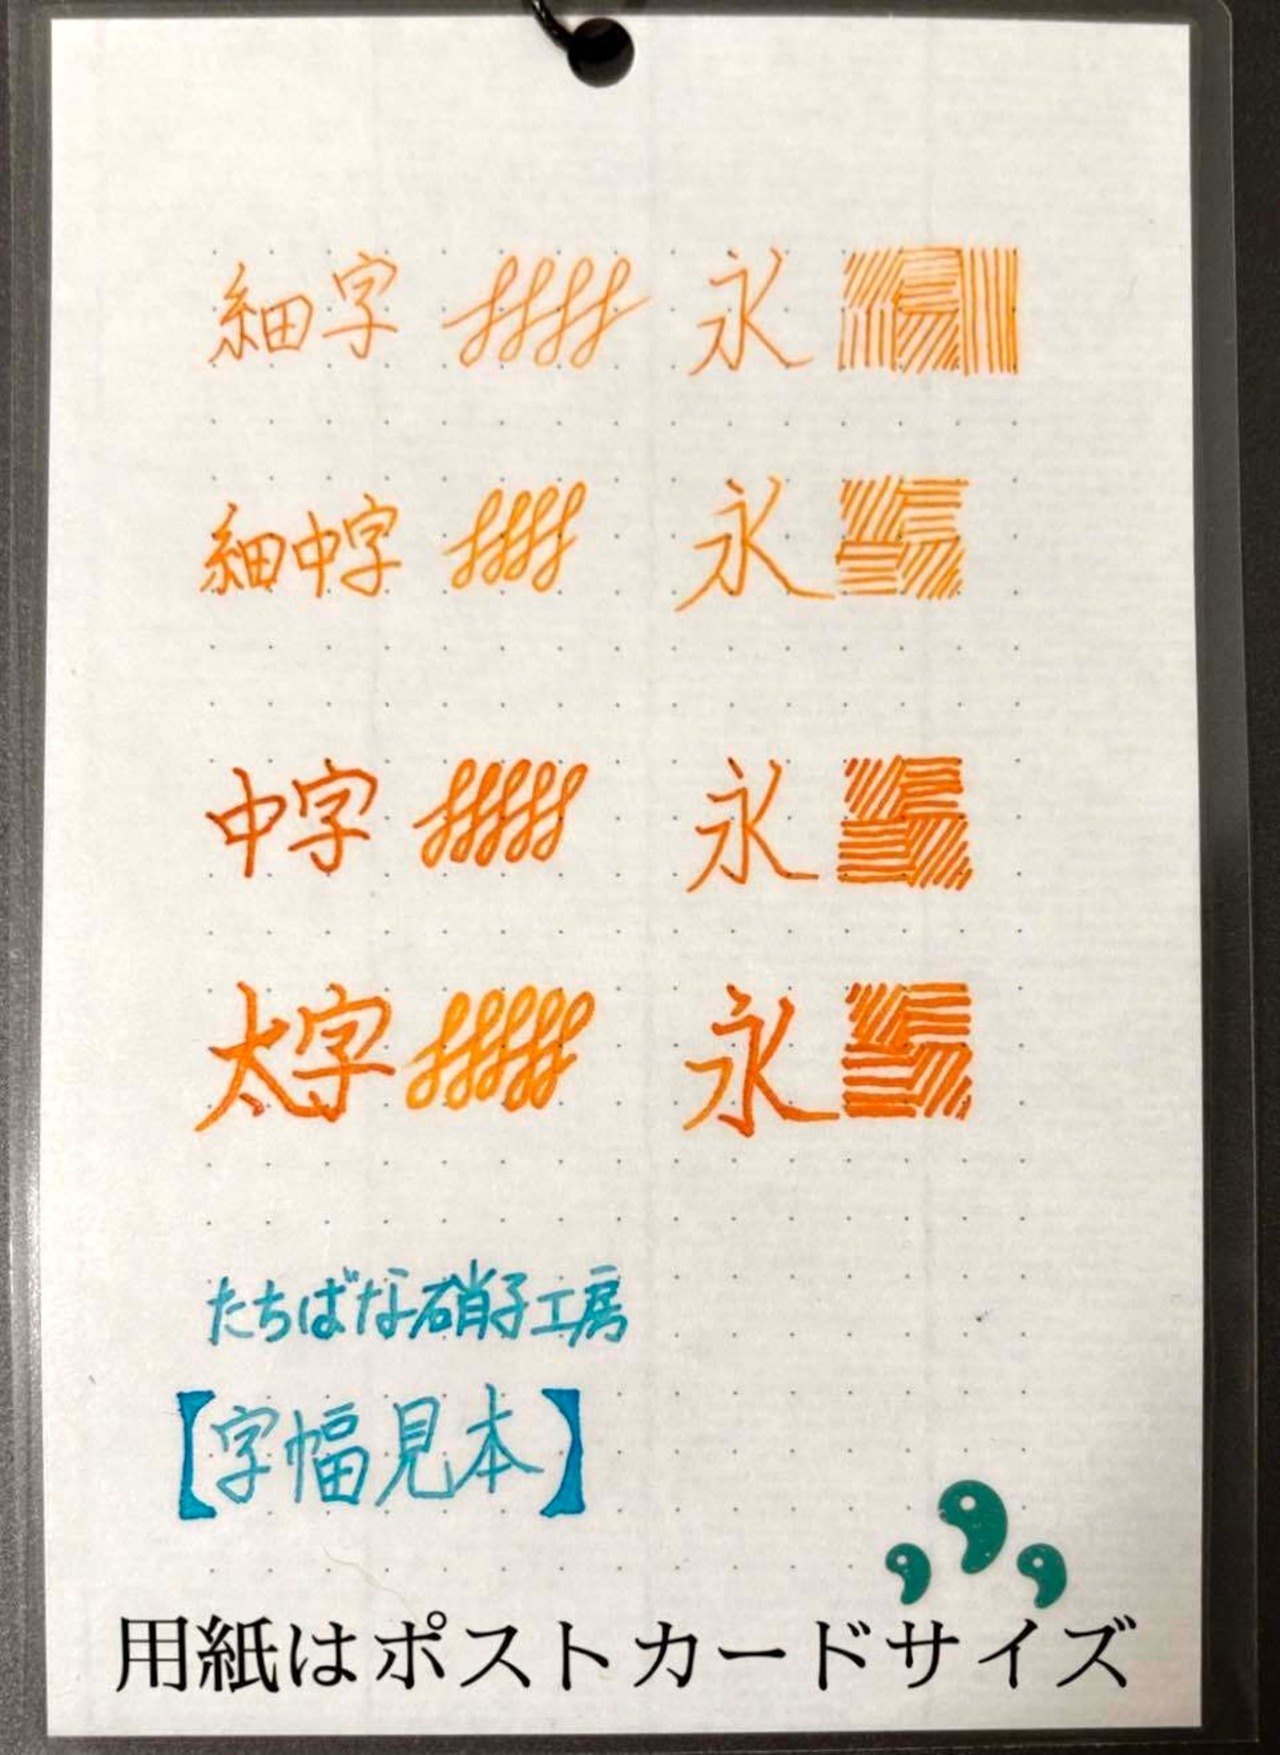 細字 永
細中字 永
中字 永
太字 永
たちばな硝子工房
【字幅見本】
用紙はポストカードサイズ